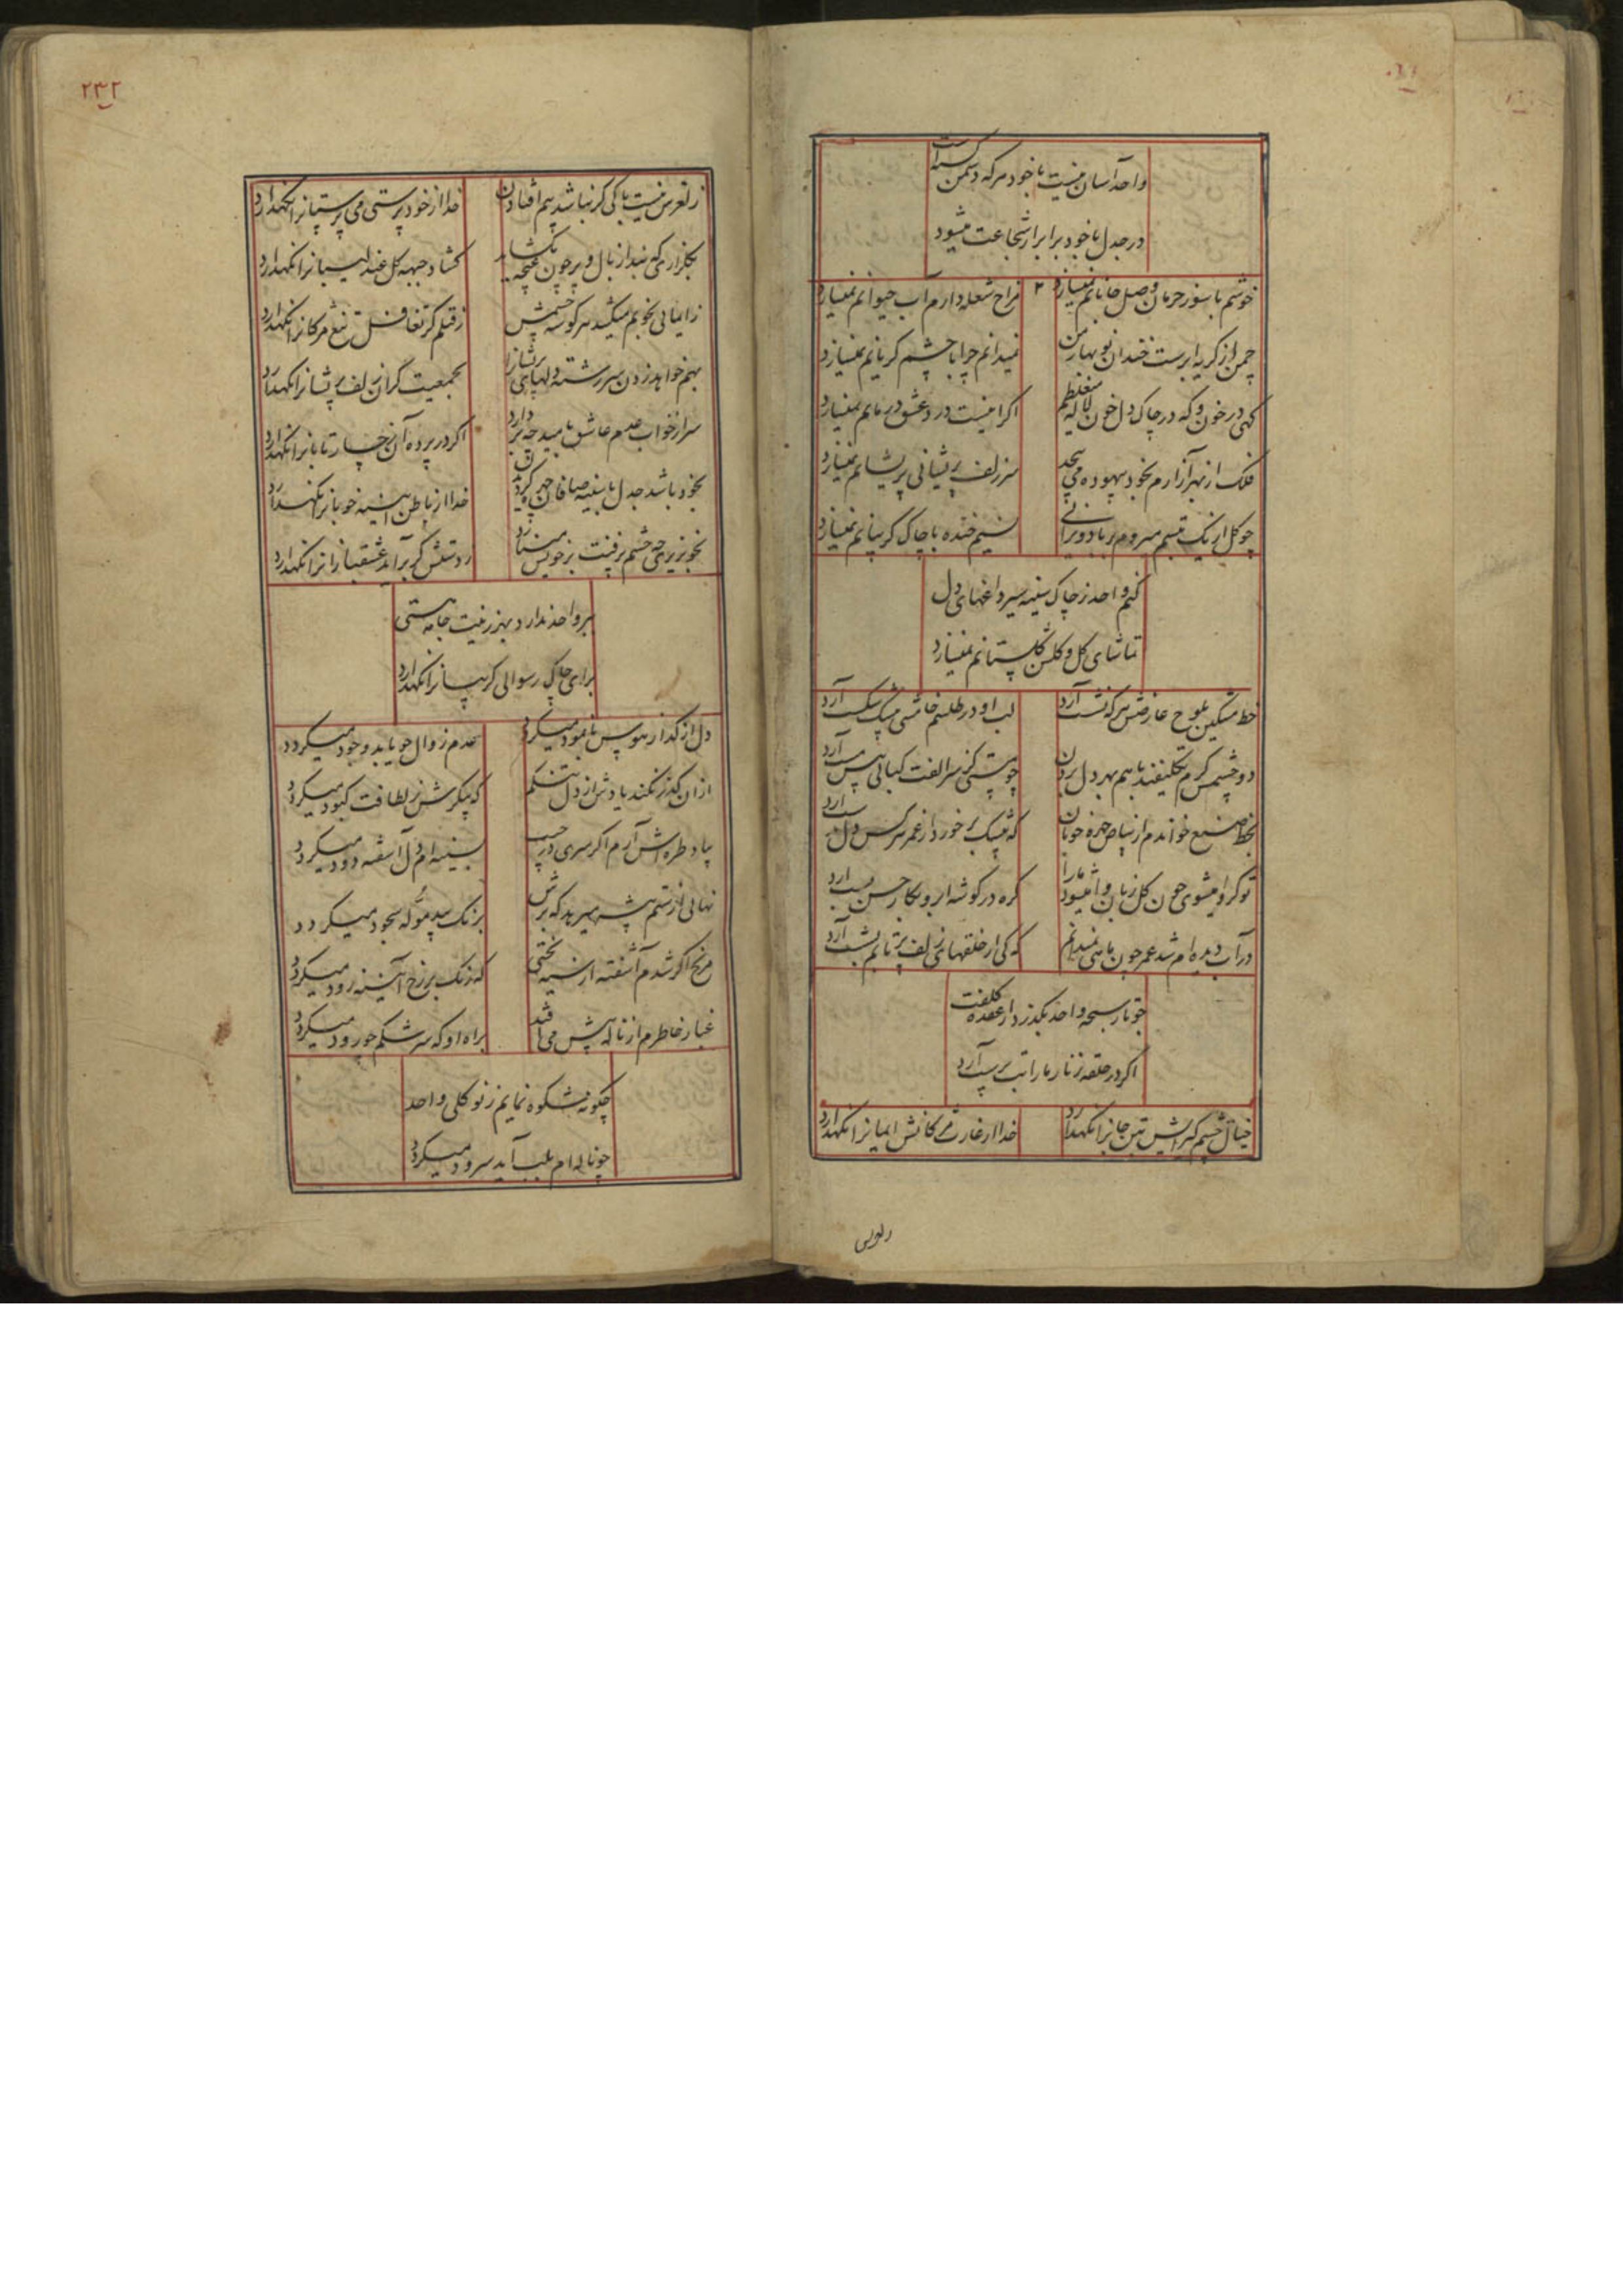 واحد آسان نیست با خود هر که دشمن گشته است
در جدل با خود برابر از شجاعت میشود
خوشم با سوز حرمان وصل جانانم نمیسازد
مزاج شعله دارم آب حیوانم نمیسازد
چمن از گریه ابرست خندان نوبهار من
نمیدانم چرا با چشم گریانم نمیسازد
گهی در خون و که در چاک دل خون لاله
اگر اینست درد عشق درمانم نمیسازد
فلک از بهر آزارم بخود بیهوده می پیچد
سر زلف پریشانی پریشانم نمیسازد
چو گل از یک تبسم میروم بر باد ویرانی
نسیم خنده با چاک گریبانم نمیسازد
کنم واحد ز چاک سینه سیر داغهای دل
تماشای گل و گلشن گلستانم نمیسازد
خط مشکین بلوح عارضش هر که نشست آرد
لب او در طلسم خامشی شکست آرد
دو چشمش گرم تکلیفند با هم بهر دل بردن
چو مستی کز سر الفت کبابی پیش مست آرد
بخط صنع خواندم از بیاض چهره خوبان
که نیک بر خورد از عمر هر کس دل بدست آرد
تو گر وا میشوی چون گل زبان وا میشود ما را
گره در گوشه ابرو بکار حسن بست آرد
در آب دیده ام شد عمر چون ماهی نمیدانم
که کی از حلقهای زلف پرتابم بشست آرد
چو تار سبحه واحد بگذرد از عقده کلفت
اگر در حلقه زنار ما را بت پرست آرد
خیال چشم گیرایش تن جانرا نگهدارد
خدا از غارت مژگانش ایمانرا نگهدارد
۲۳۲
ز لغزش نیست باکی گر نباشد بیم افتادن
خدا از خود پرستی می پرستانرا نگهدارد
بگلزاری که نبد از بال و پر چون غنچه بگشاید
گشاد جبهه گل عندلیبانرا نگهدارد
ز ایمائی بخونم میکشد هر گوشه چشمش
رقیبم گر تغافل تیغ مژگانرا نگهدارد
بهم خواهد زدن سررشته دلهای پریشانرا
بجمعیت گر آن زلف پریشانرا نگهدارد
سر از خواب عدم عاشق بامید چه بردارد
اگر در پرده آن رخسار تابانرا نگهدارد
بخود باشد جدل با سینه صافان چهره گردیدن
خدا از باطن آیینه خوبانرا نگهدارد
بخونریزی چه خشم رفتنت بر خویش مینازد
ز دستش گر برآید عشقبازانرا نگهدارد
سر واحد ندارد بهر زینت جامه هستی
برای چاک رسوائی گریبانرا نگهدارد
دل از گداز هوس با نمود میگردد
عدم زوال چو یابد وجود میگردد
از آن گذر نکند یادش از دل تنگم
که پیکرش ز لطافت کبود میگردد
بیاد طره اش آرم اگر سری در جیب
بسینه ام دل آشفته دود میگردد
نهانی از ستم تیشه میرید که برش
برنگ بید موله بجود میگردد
مرنج اگر شدم آشفته از سیه بختی
که زنگ بر رخ آیینه زود میگردد
غبار خاطرم از ناله پیش می افتد
براه او که سرشکم چو رود میگردد
چگونه شکوه نمایم ز تو گلی واحد
چو ناله ام بلب آید سرود میگردد